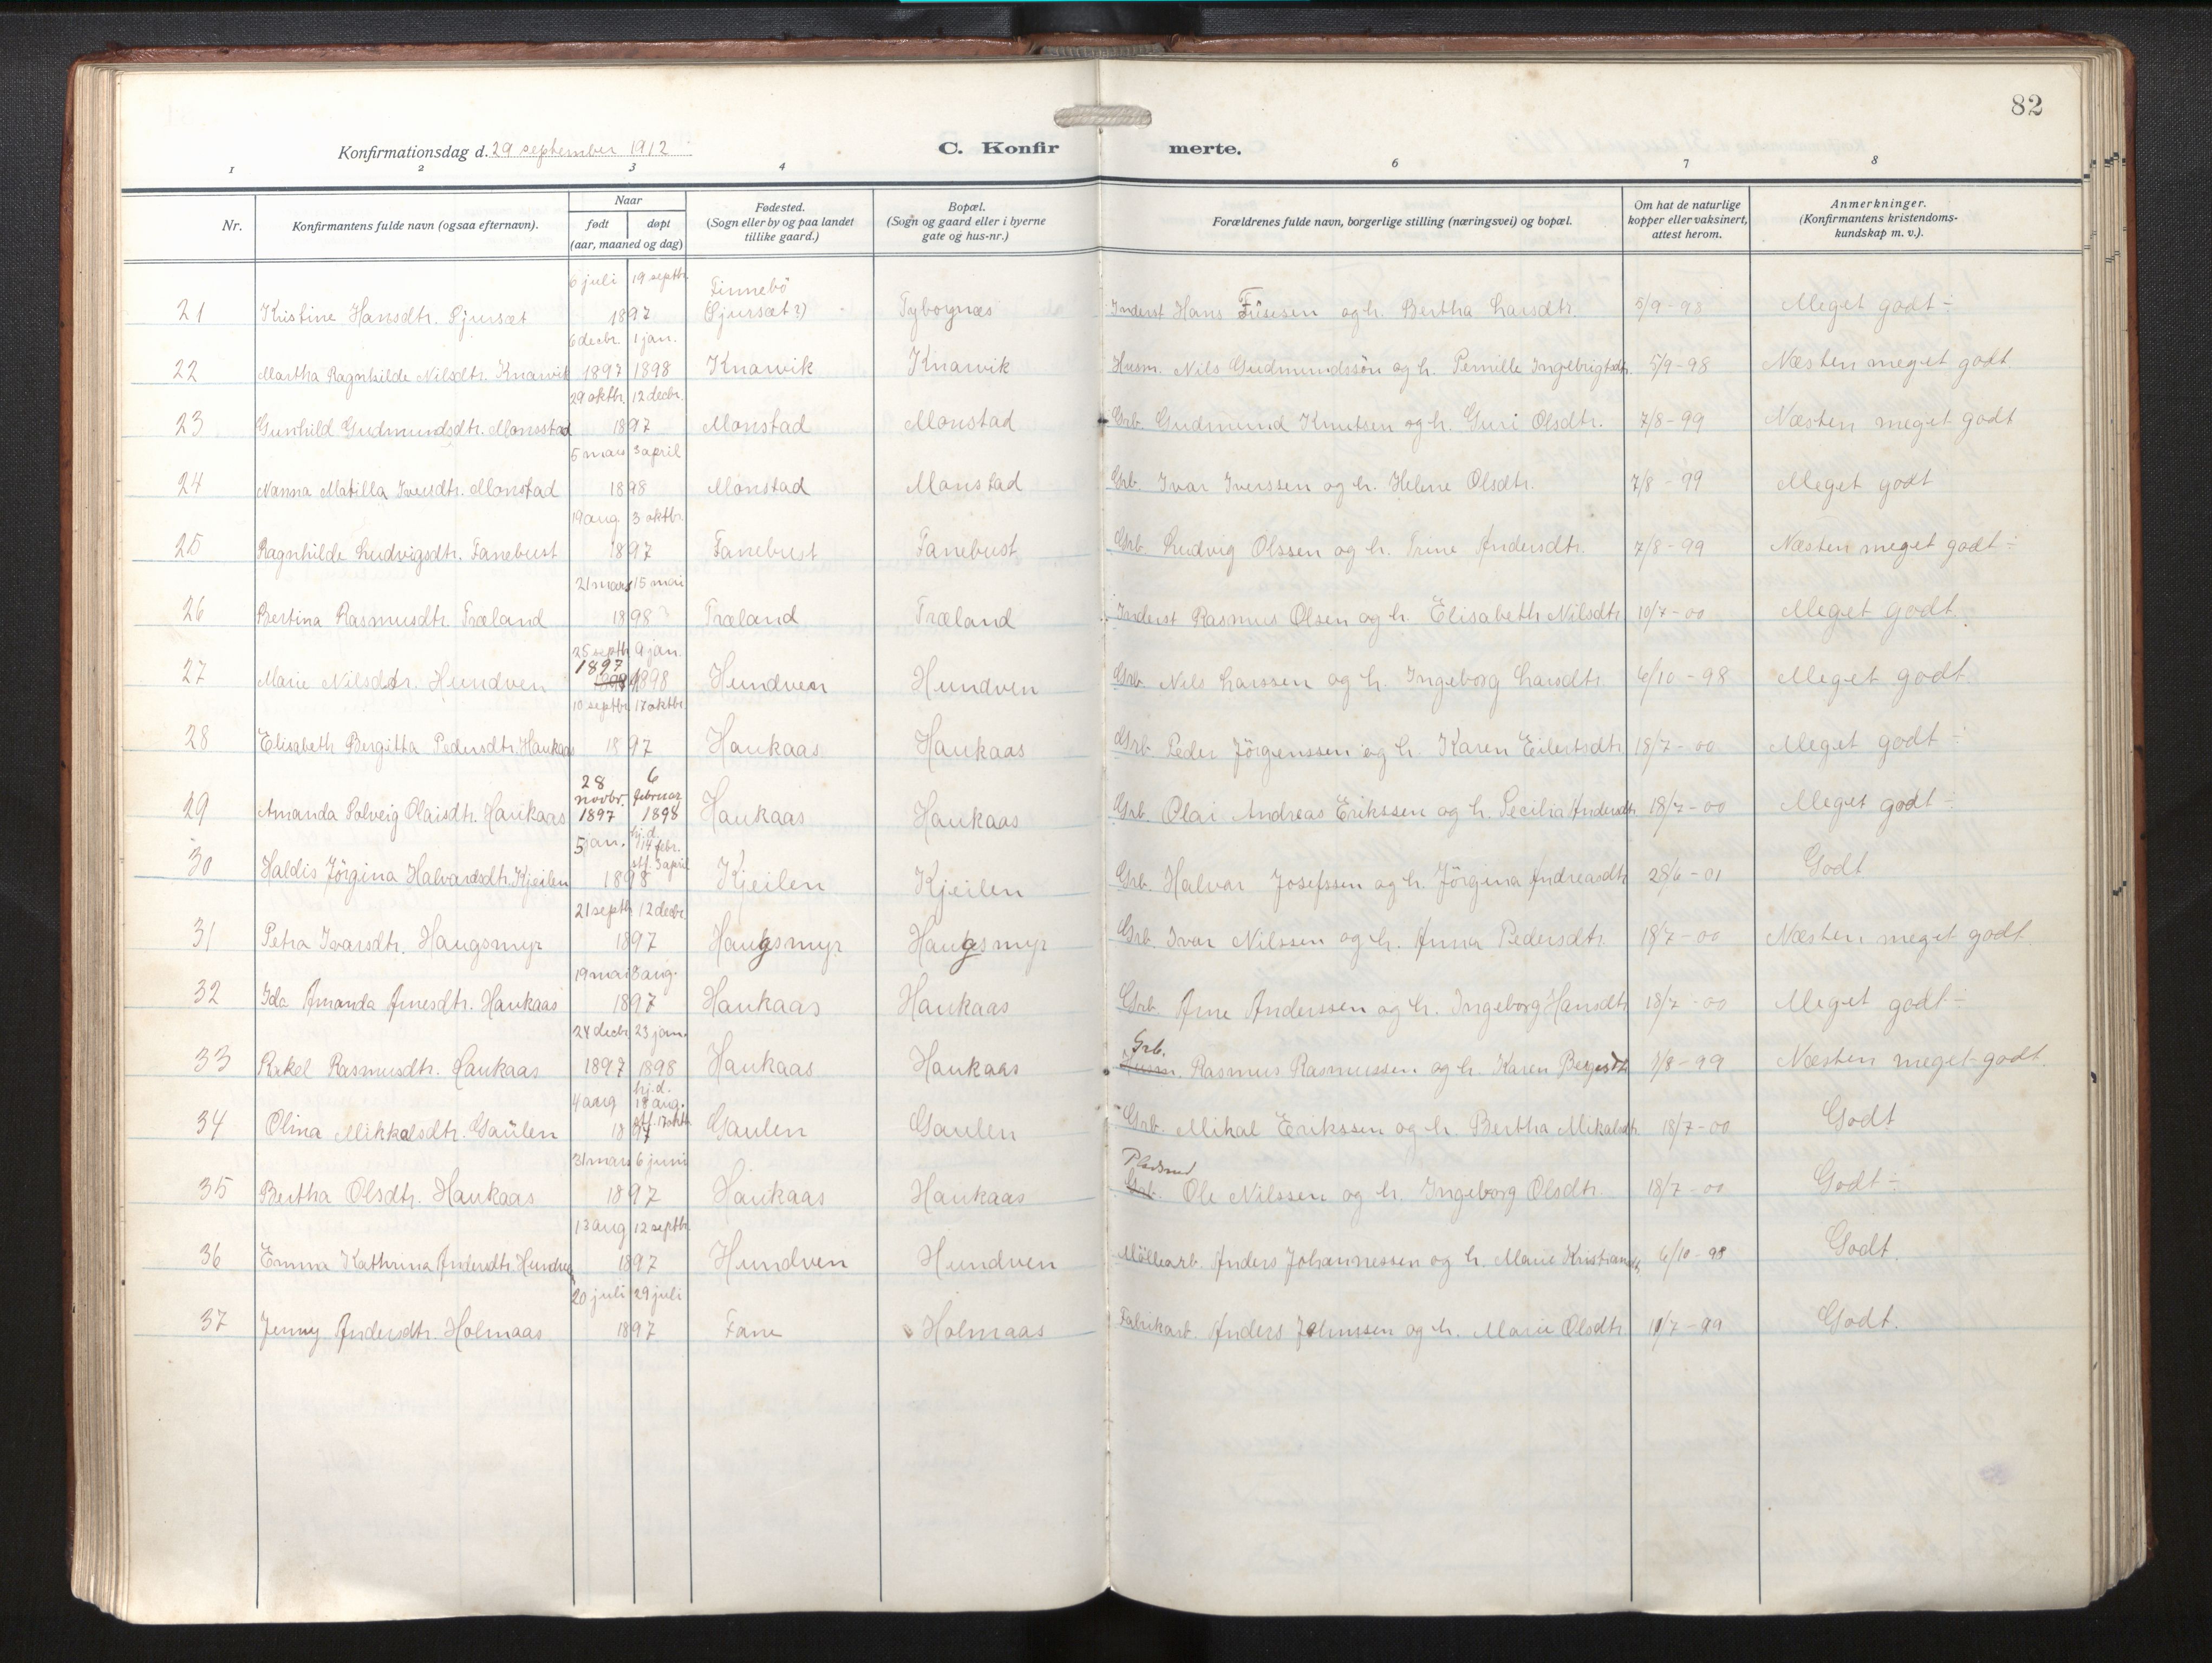 82
Konfirmationsdag d. 29 september 1912
C. Konfirmerte.
1 2 3 4 6 7 8
Nr.
Konfirmantens fulde navn (ogsaa efternavn).
Naar
født døpt
(aar, maaned og dag)
Fødested.
(Sogn eller by og paa landet
tillike gaard.)
Bopæl.
(Sogn og gaard eller i byerne
gate og hus-nr.)
Forældrenes fulde navn, borgerlige stilling (næringsvei) og bopæl.
Om hat de naturlige
kopper eller vaksinert,
attest herom.
Anmerkninger.
(Konfirmantens kristendoms-
kundskap m. v.).
6 juli 19 septbr. Finnebö
21 Kristine Hansdtr. 1897 Inderst Hans og h. Bertha Larsdtr. 5/9-98 Meget godt ÷
6 decbr. 1 jan.
22 Martha Ragnhilde Nilsdtr. Knarvik 1897 1898 Knarvik Knarvik Husm. Nils Gudmundssön og h. Pernille Ingebrigtsdtr. 5/9-98 Næsten meget godt
29 oktbr. 12 decbr.
23 Gunhild Gudmundsdtr. Monsstad 1897 Monstad Monstad Grb. Gudmund Knutsen og h. Guri Olsdtr. 7/8-99 Næsten meget godt
5 mars 3 april
24 Nanna Matilla Iversdtr. Monstad 1898 Monstad Monstad Grb. Ivar Iverssen og h. Helene Olsdtr. 7/8-99 Meget godt
19 aug 3 oktbr
25 Ragnhilde Ludvigsdtr. Fanebust 1897 Fanebust Fanebust Grb. Ludvig Olssen og h. Trine Andersdtr. 7/8-99 Næsten meget godt ÷
21 mars 15 mai
26 Bertina Rasmusdtr. Træland 1898 Træland Træland Inderst Rasmus Olsen og h. Elisabeth Nilsdtr. 10/7-00 Meget godt.
25 septbr 9 jan.
27 Marie Nilsdtr. Hundven 1897 1898 Hundven Hundven Grb. Nils Larssen og h. Ingeborg Larsdtr. 6/10-98 Meget godt.
10 septbr 17 oktbr.
28 Elisabeth Bergitta Pedersdtr. Haukaas 1897 Haukaas Haukaas Grb. Peder Jörgenssen og h. Karen Eilertsdtr. 18/7-00 Meget godt ÷
28 6
novbr. februar
29 Amanda Solveig Olaisdtr. Haukaas 1897 1898 Haukaas Haukaas Grb. Olai Andreas Erikssen og h. Secilia Andersdtr 18/7-00 Meget godt ÷
5 jan. hj.d. 14 febr.
stf. 3 april
30 Haldis Jörgina Halvardsdtr. Kjeilen 1898 Kjeilen Kjeilen Grb. Halvar Josefssen og h. Jörgina Andreasdtr 28/6-01 Godt
21 septb 12 decbr
31 Petra Ivarsdtr. Haugsmyr 1897 Haugsmyr Haugsmyr Grb. Ivar Nilssen og h. Anna Pedersdtr. 18/7-00 Næsten meget godt
19 mai 8 aug.
32 Ida Amanda Arnesdtr. Haukaas 1897 Haukaas Haukaas Grb. Arne Anderssen og h. Ingeborg Hansdtr 18/7-00 Meget godt ÷
24 decbr 23 jan. Grb.
33 Rakel Rasmusdtr. Haukaas 1897 1898 Haukaas Haukaas Husm. Rasmus Rasmussen og h. Karen 7/8-99 Næsten meget godt.
4 aug hj.d. 18 aug.
stf. 17 oktb
34 Olina Mikkalsdtr. Gaulen 1897 Gaulen Gaulen Grb. Mikal Erikssen og h. Bertha Mikalsdtr. 18/7-00 Godt
31 mars 6 juni
35 Bertha Olsdtr. Haukaas 1897 Haukaas Haukaas Grb. Ole Nilssen og h. Ingeborg Olsdtr. 18/7-00 Godt ÷
13 aug 12 septbr.
36 Emma Kathrina Andersdtr. Hundven 1897 Hundven Hundven Möllearb. Anders Johannessen og h. Marie Kristiansdtr. 6/10-98 Godt.
20 juli 29 juli
37 Jenny Andersdtr. Holmaas 1897 Fane Holmaas Fabrikarb. Anders og h. Marie Olsdtr Godt.